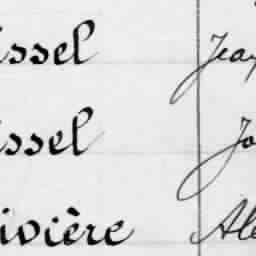 issel Jean
issel Jo
ivière Ale